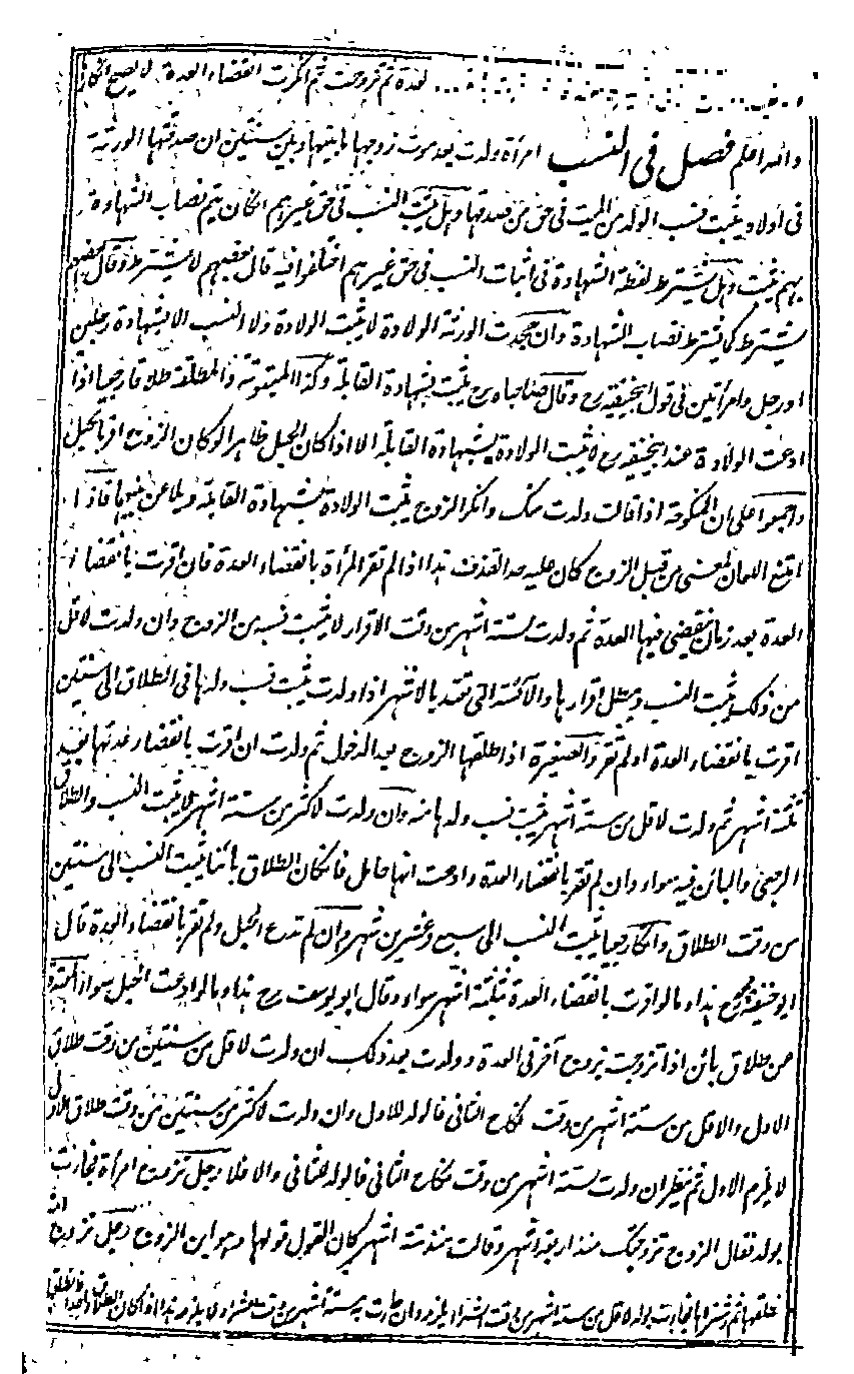 العدة ثم تزوجت ثم انكرت انقضاء العدة لا يصح
والله اعلم فصل في النسب امرأة ولدت بعد موت زوجها ما بينها وبين سنتين ان صدقتها الورثة
في اولاده يثبت نسب الولد من الميت في حق من صدقها وهل يثبت النسب في حق غيرهم ان كان يتم نصاب الشهادة
بهم يثبت وهل يشترط لفظة الشهادة في اثبات النسب في حق غيرهم اختلفوا فيه قال بعضهم لا يشترط وقال بعضهم
يشترط كما يشترط نصاب الشهادة وان جحدت الورثة الولادة لا يثبت الولادة ولا النسب الا بشهادة رجلين
او رجل وامرأتين في قول ابيحنيفة رح وقال صاحباه رح يثبت بشهادة القابلة وكذا المبتوتة والمطلقة طلاقا رجعيا اذا
ادعت الولادة عند ابيحنيفة رح لا يثبت الولادة بشهادة القابلة الا اذا كان الحبل ظاهرا او كان الزوج اقر بالحبل
واجمعوا على ان المنكوحة اذا قالت ولدت منك وانكر الزوج يثبت الولادة بشهادة القابلة ويلاعن بنفيها فاذا
امتنع اللعان لمعنى من قبل الزوج كان عليه حد القذف هذا اذا لم تقر المرأة بانقضاء العدة فان اقرت بانقضاء
العدة بعد زمان ينقضي فيها العدة ثم ولدت لستة اشهر من وقت الاقرار لا يثبت نسبه من الزوج وان ولدت لاقل
من ذلك يثبت النسب ويبطل اقرارها والآئسة التي تعتد بالاشهر اذا ولدت يثبت نسب ولدها في الطلاق الى سنتين
اقرت بانقضاء العدة او لم تقر والصغيرة اذا طلقها الزوج بعد الدخول ثم ولدت ان اقرت بانقضاء عدتها بعد
ثلثة اشهر ثم ولدت لاقل من ستة اشهر يثبت نسب ولدها منه وان ولدت لاكثر من ستة اشهر لا يثبت النسب والطلاق
الرجعي والبائن فيه سواء وان لم تقر بانقضاء العدة وادعت انها حامل فان كان الطلاق بائنا يثبت النسب الى سنتين
من وقت الطلاق وان كان رجعيا يثبت النسب الى سبع وعشرين شهرا وان لم تدع الحبل ولم تقر بانقضاء العدة قال
ابو حنيفة ومحمد رح هذا وما لو اقرت بانقضاء العدة بثلثة اشهر سواء وقال ابو يوسف رح هذا وما لو ادعت الحبل سواء المعتدة
عن طلاق بائن اذا تزوجت بزوج آخر في العدة وولدت بعد ذلك ان ولدت لاقل من سنتين من وقت طلاق
الاول والاقل من ستة اشهر من وقت نكاح الثاني فالولد للاول وان ولدت لاكثر من سنتين من وقت طلاق الاول
لا يلزم الاول ثم ينظر ان ولدت لستة اشهر من وقت نكاح الثاني فالولد للثاني والا فلا رجل تزوج امرأة فجاءت
بولد فقال الزوج تزوجتك منذ اربعة اشهر وقالت منذ ستة اشهر كان القول قولها وهو ابن الزوج رجل تزوج امة
فطلقها ثم اشتراها فجاءت بولد لاقل من ستة اشهر من وقت الشراء يلزمه وان جاءت به لستة اشهر من وقت الشراء لا يلزمه هذا اذا كان الطلاق واحدا